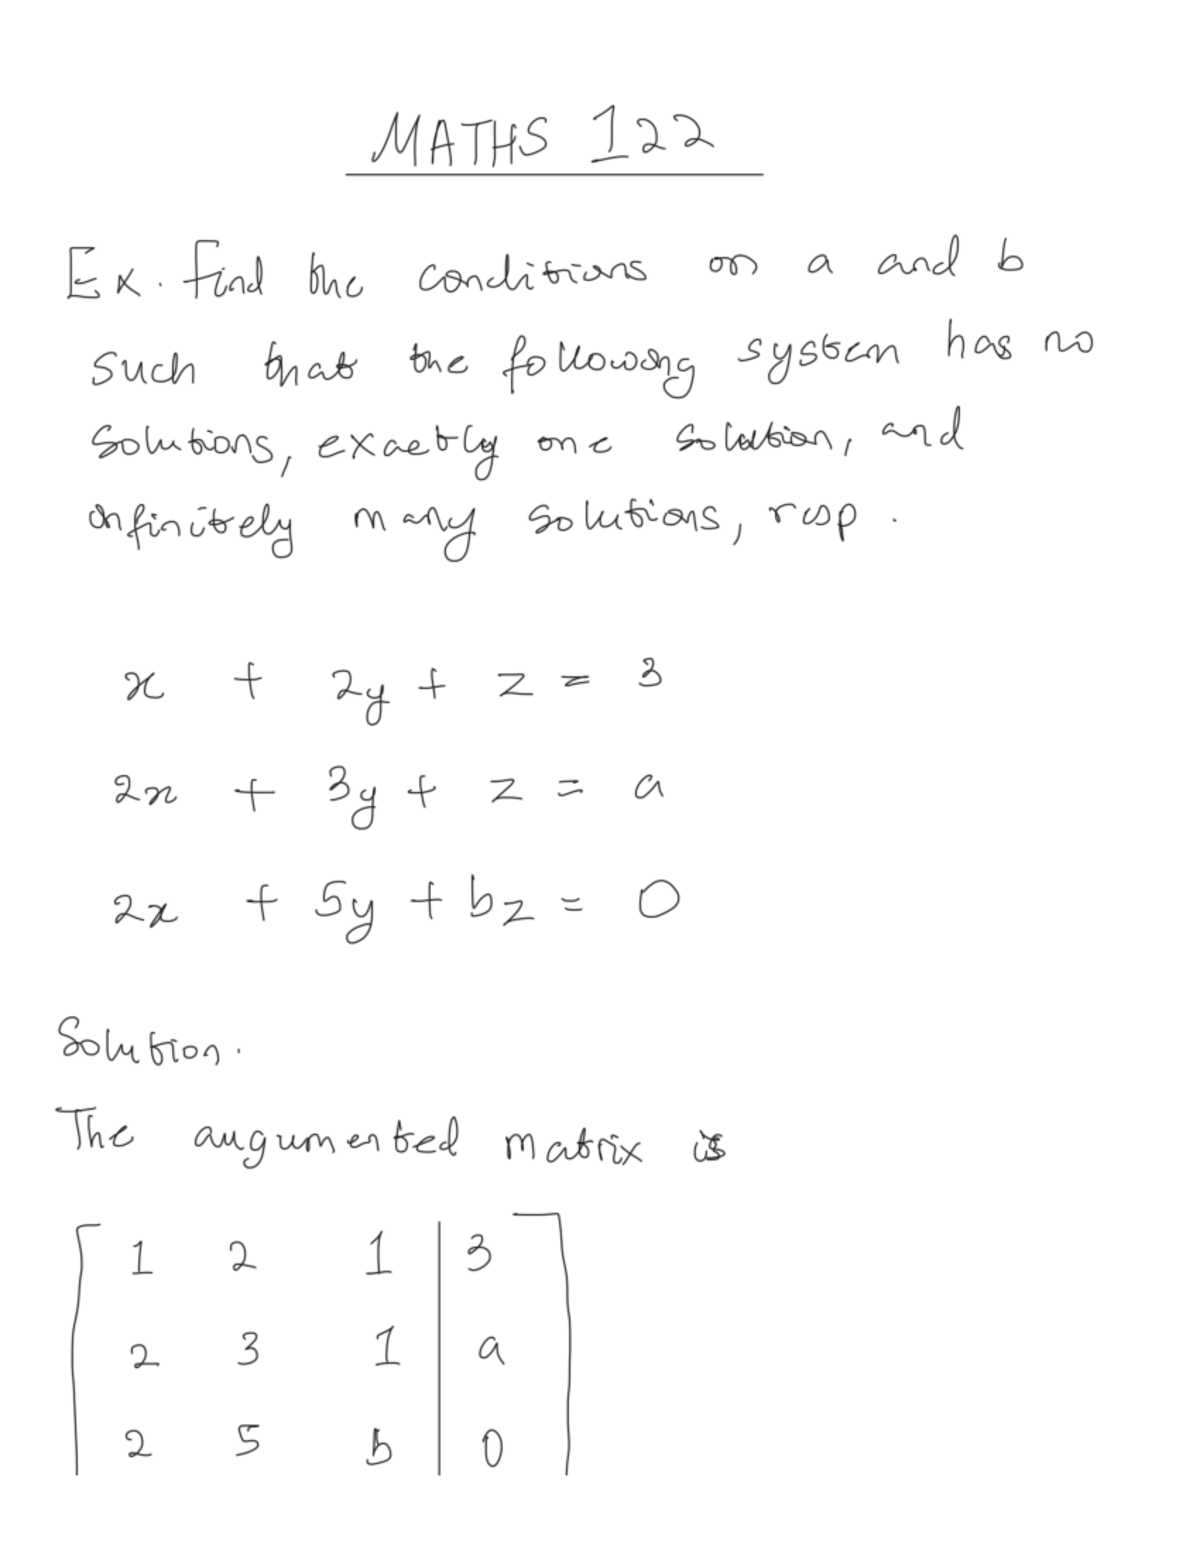 MATHS 122
Ex. Find the conditions on a and b
such that the following system has no
solutions, exactly one solution, and
infinitely many solutions, resp.
x + 2y + z = 3
2x + 3y + z = a
2x + 5y + bz = 0
Solution.
The augumented matrix is
1 2 1 | 3
2 3 1 | a
2 5 b | 0